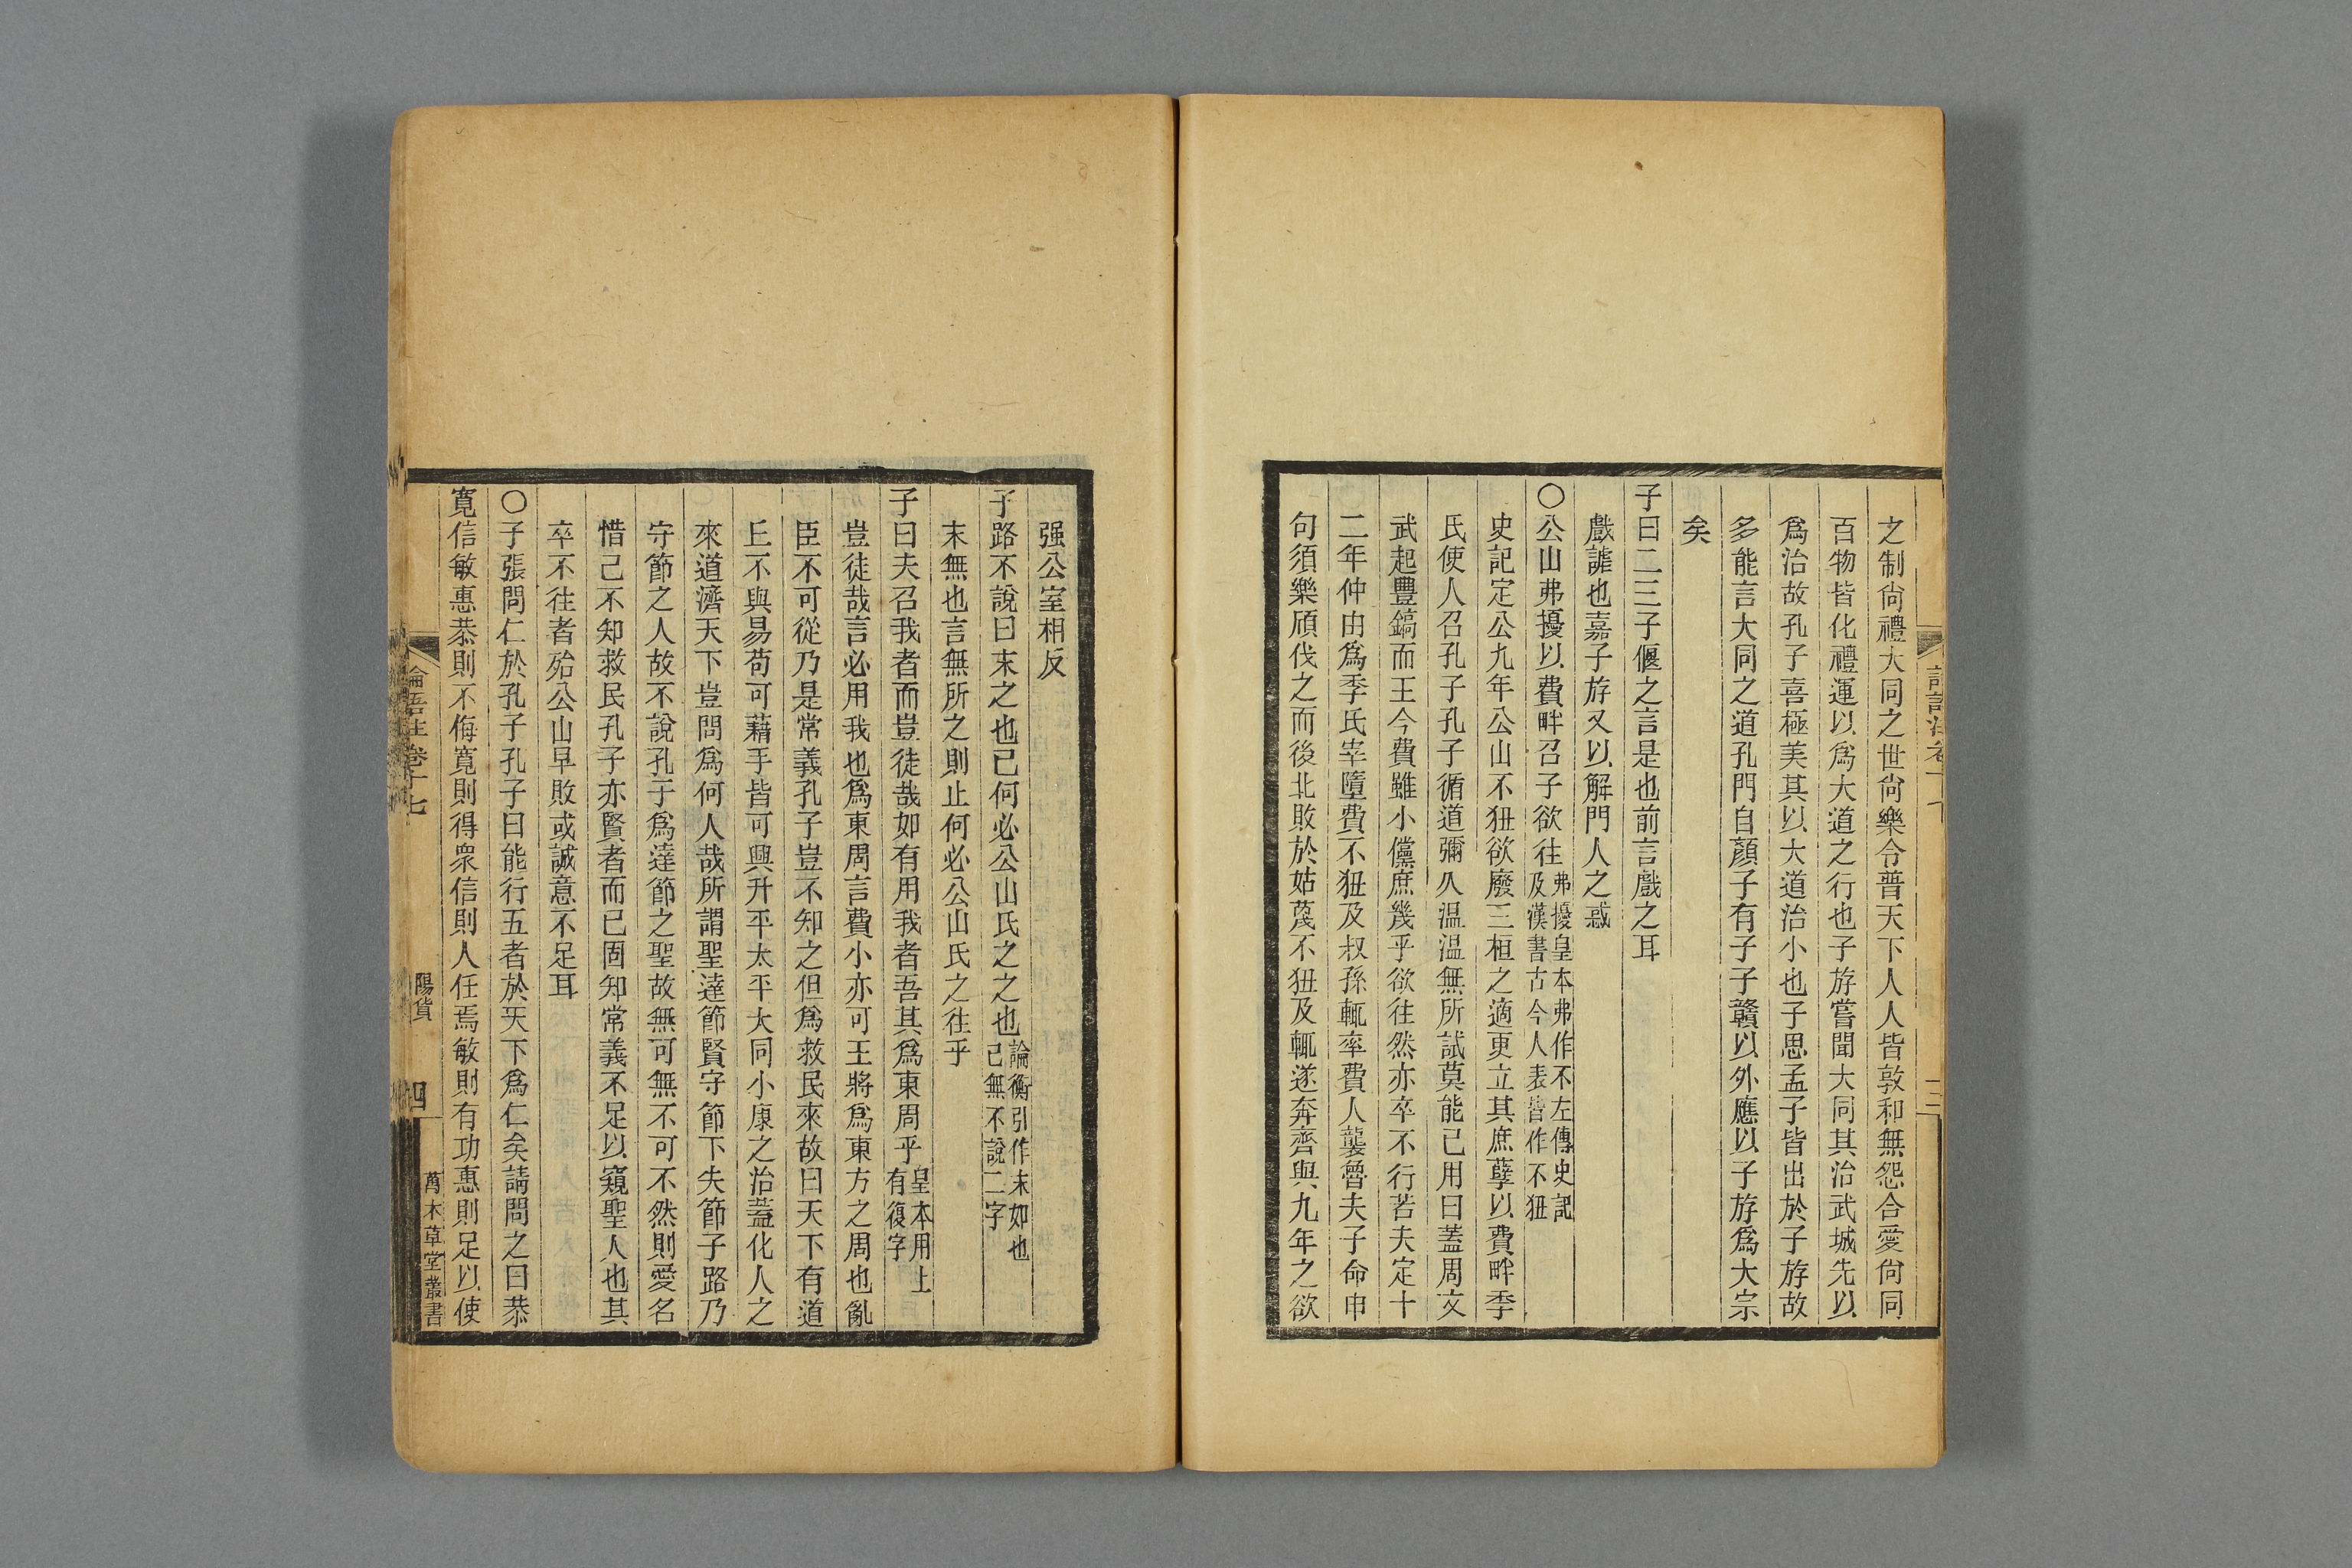 之制尙禮大同之世尙樂令普天下人人皆敦和無怨合愛尙同
百物皆化禮運以爲大道之行也子游嘗聞大同其治武城先以
爲治故孔子喜極美其以大道治小也子思孟子皆出於子游故
多能言大同之道孔門自顏子有子子贛以外應以子游爲大宗
矣
子曰二三子偃之言是也前言戲之耳
戲謔也嘉子游又以解門人之惑
〇公山弗擾以費畔召子欲往弗擾皇本弗作不左傳史記
及漢書古今人表皆作不狃
史記定公九年公山不狃欲廢三桓之適更立其庶孽以費畔季
氏使人召孔子孔子循道彌久温温無所試莫能己用曰蓋周文
武起豐鎬而王今費雖小儻庶幾乎欲往然亦卒不行若夫定十
二年仲由爲季氏宰墮費不狃及叔孫輒率費人襲魯夫子命申
句須樂頎伐之而後北敗於姑蔑不狃及輒遂奔齊與九年之欲
强公室相反
子路不說曰末之也已何必公山氏之之也論衡引作末如也
已無不說二字
末無也言無所之則止何必公山氏之往乎
子曰夫召我者而豈徒哉如有用我者吾其爲東周乎皇本用上
有復字
豈徒哉言必用我也爲東周言費小亦可王將爲東方之周也亂
臣不可從乃是常義孔子豈不知之但爲救民來故曰天下有道
丘不與易苟可藉手皆可興升平太平大同小康之治蓋化人之
來道濟天下豈問爲何人哉所謂聖達節賢守節下失節子路乃
守節之人故不說孔子爲達節之聖故無可無不可不然則愛名
惜己不知救民孔子亦賢者而已固知常義不足以窺聖人也其
卒不往者殆公山早敗或誠意不足耳
〇子張問仁於孔子孔子曰能行五者於天下爲仁矣請問之曰恭
寛信敏惠恭則不侮寛則得衆信則人任焉敏則有功惠則足以使
論語注卷十七
陽貨
四
萬木草堂叢書